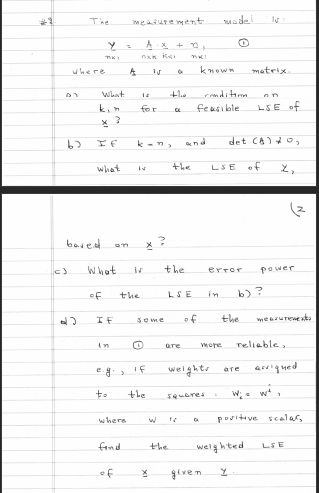 #3 The measurement model is:
y = A · x + n, ①
n×1 n×k k×1 n×1
where A is a known matrix.
a) What is the condition on
k, n for a feasible LSE of
x ?
b) IF k = n, and det (A) ≠ 0,
what is the LSE of y,
(2
based on x ?
c) What is the error power
of the LSE in b) ?
d) IF some of the measurements
in ① are more reliable,
e.g., if weights are assigned
to the squares : wᵢ = wⁱ,
where w is a positive scalar,
find the weighted LSE
of x given y.